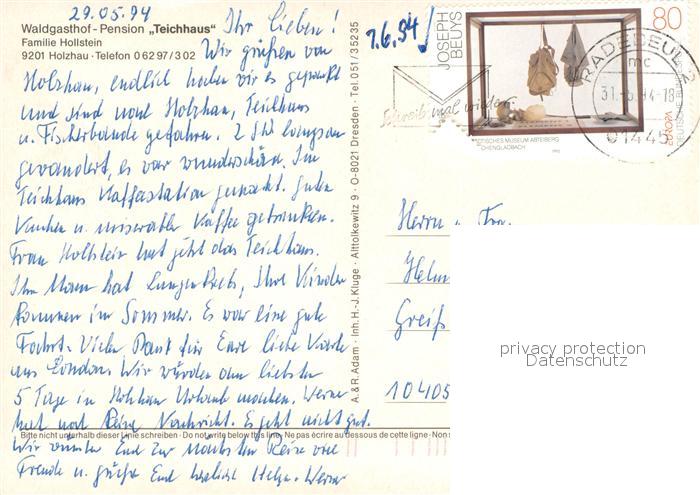 29.05.94
Waldgasthof - Pension „Teichhaus“
Familie Hollstein
9201 Holzhau · Telefon 0 62 97/3 02
Ihr Lieben!
Wir grüßen von
Holzhau, endlich haben wir es gepackt
und sind nach Holzhau, Teichhaus
u. Fischerbaude gefahren. 2 Std langsam
gewandert, es war wunderschön. Im
Teichhaus Kaffeestation gemacht. Guten
Kuchen u. miserable Kaffee getrunken.
Frau Hollstein hat jetzt das Teichhaus.
Ihr Mann hat Lungenkrebs, Ihre Kinder
kommen im Sommer. Es war eine gute
Fahrt. Vielen Dank für Eure liebe Karte
aus London. Wir würden am liebsten
5 Tage in Holzhau Urlaub machen. Werner
hat noch keine Nachricht. Es geht nicht gut.
Bitte nicht unterhalb dieser Linie schreiben · Do not write below this line · Ne pas écrire au dessous de cette ligne · Non s
Wir wünschen Euch zur nächsten Reise viel
Freude u. grüße Euch herzlich Helga. Werner
A. & R. Adam · Inh. H.-J. Kluge · Alttolkewitz 9 · O-8021 Dresden · Tel. 051/35235
7.6.94
JOSEPH
BEUYS
80
DEUTSCHE BUNDESPOST
EUROPA
STÄDTISCHES MUSEUM ABTEIBERG
MÖNCHENGLADBACH
1993
Schreib mal wieder
RADEBEUL
mc
31.-5.94-18
01445
Herrn u. Fr.
Helm
Greif
10405
privacy protection
Datenschutz